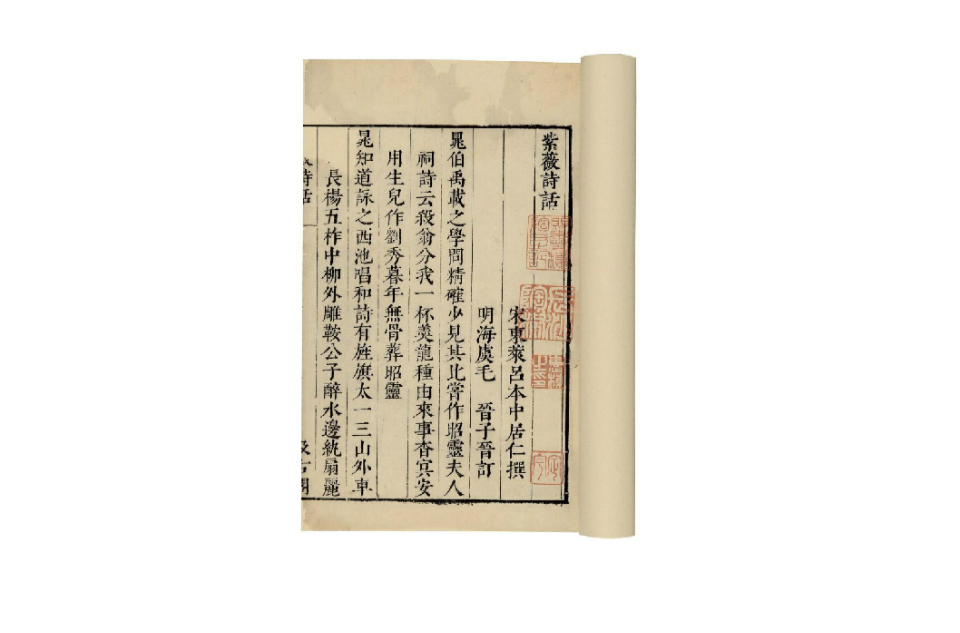 紫薇詩話
宋東萊呂本中居仁撰
明海虞毛　晉子晉訂
晁伯禹載之學問精確少見其比嘗作昭靈夫人
祠詩云殺翁分我一杯羹龍種由來事杳冥安
用生兒作劉秀暮年無骨葬昭靈
晁知道詠之西池唱和詩有旌旗太一三山外車
長楊五柞中柳外雕鞍公子醉水邊紈扇麗
詩話